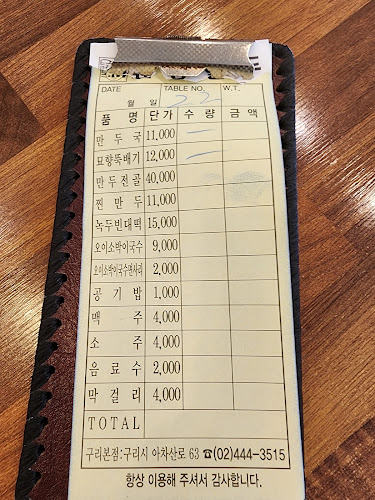 DATE TABLE NO. W.T.
월 일 22
품 명 단가 수 량 금 액
만 두 국 11,000 一
묘향뚝배기 12,000 一
만두전골 40,000
찐 만 두 11,000
녹두빈대떡 15,000
오이소박이국수 9,000
오이소박이국수면사리 2,000
공 기 밥 1,000
맥 주 4,000
소 주 4,000
음 료 수 2,000
막 걸 리 4,000
TOTAL
구리본점:구리시 아차산로 63 ☎(02)444-3515
항상 이용해 주셔서 감사합니다.